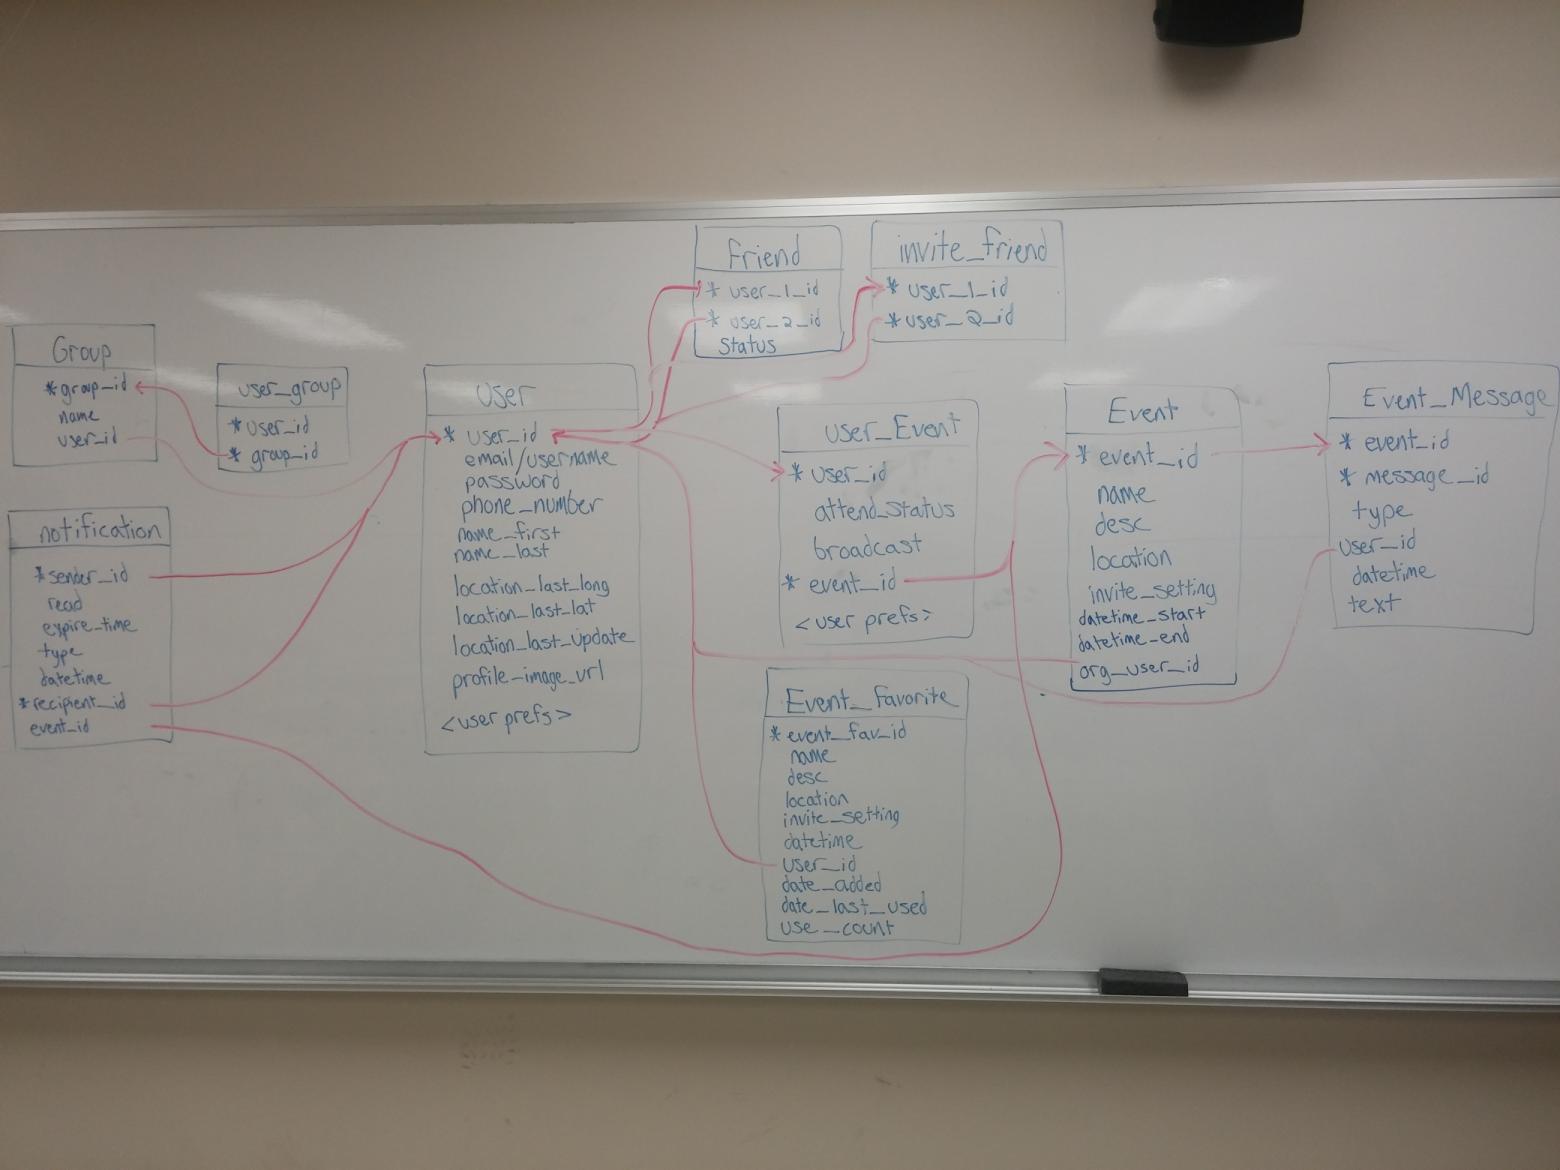 Group
*group_id
name
user_id
user_group
*user_id
* group_id
notification
*sender_id
read
expire_time
type
datetime
*recipient_id
event_id
User
* user_id
email/username
password
phone_number
name_first
name_last
location_last_long
location_last_lat
location_last_update
profile_image_url
<user prefs>
Friend
* user_1_id
* user_2_id
Status
invite_friend
* user_1_id
*user_2_id
user_Event
* user_id
attend_status
broadcast
* event_id
<user prefs>
Event_favorite
*event_fav_id
name
desc
location
invite_setting
datetime
user_id
date_added
date_last_used
use_count
Event
* event_id
name
desc
location
invite_setting
datetime_start
datetime_end
org_user_id
Event_Message
* event_id
* message_id
type
user_id
datetime
text